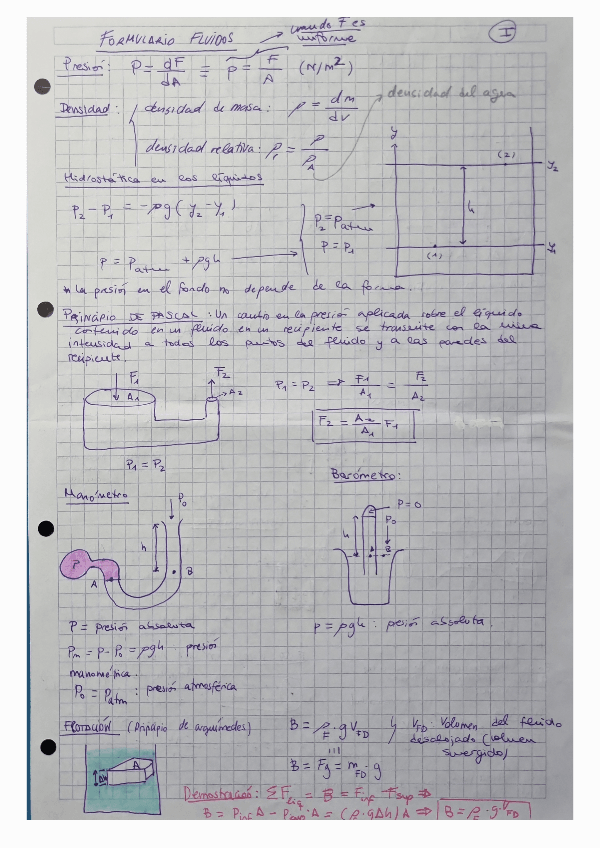 FORMULARIO FLUIDOS
cuando F es
uniforme
I
Presión: P = dF/dA ≡ P = F/A (N/m²)
densidad del agua
Densidad: densidad de masa: ρ = dm/dv
densidad relativa: ρr = ρ/ρA
Hidrostática en los líquidos
P2 - P1 = -ρg(y2 - y1)
P2 = Patm
P = P1
P = Patm + ρgh
y
(2)
y2
h
(1)
y1
* La presión en el fondo no depende de la forma.
PRINCIPIO DE PASCAL: Un cambio en la presión aplicada sobre el líquido
contenido en un fluido en un recipiente se transmite con la misma
intensidad a todos los puntos del fluido y a las paredes del
recipiente.
F1
A1
F2
A2
P1 = P2 → F1/A1 = F2/A2
F2 = A2/A1 F1
P1 = P2
Manómetro
Barómetro:
P0
h
P
A
B
P = 0
P0
h
A
B
P = presión absoluta
Pm = P - P0 = ρgh presión
manométrica.
P0 = Patm : presión atmosférica
P = ρgh : presión absoluta.
FLOTACIÓN (Principio de arquímedes)
B = ρF · g VFD
VFD: Volumen del fluido
desalojado (volumen
sumergido)
B = Fg = mFD · g
A
Δh
Demostración: ΣFliq = B = Finf - Fsup ⇒
B = Pinf A - Psup · A = (ρ · gΔh) A ⇒ B = ρF · g · VFD